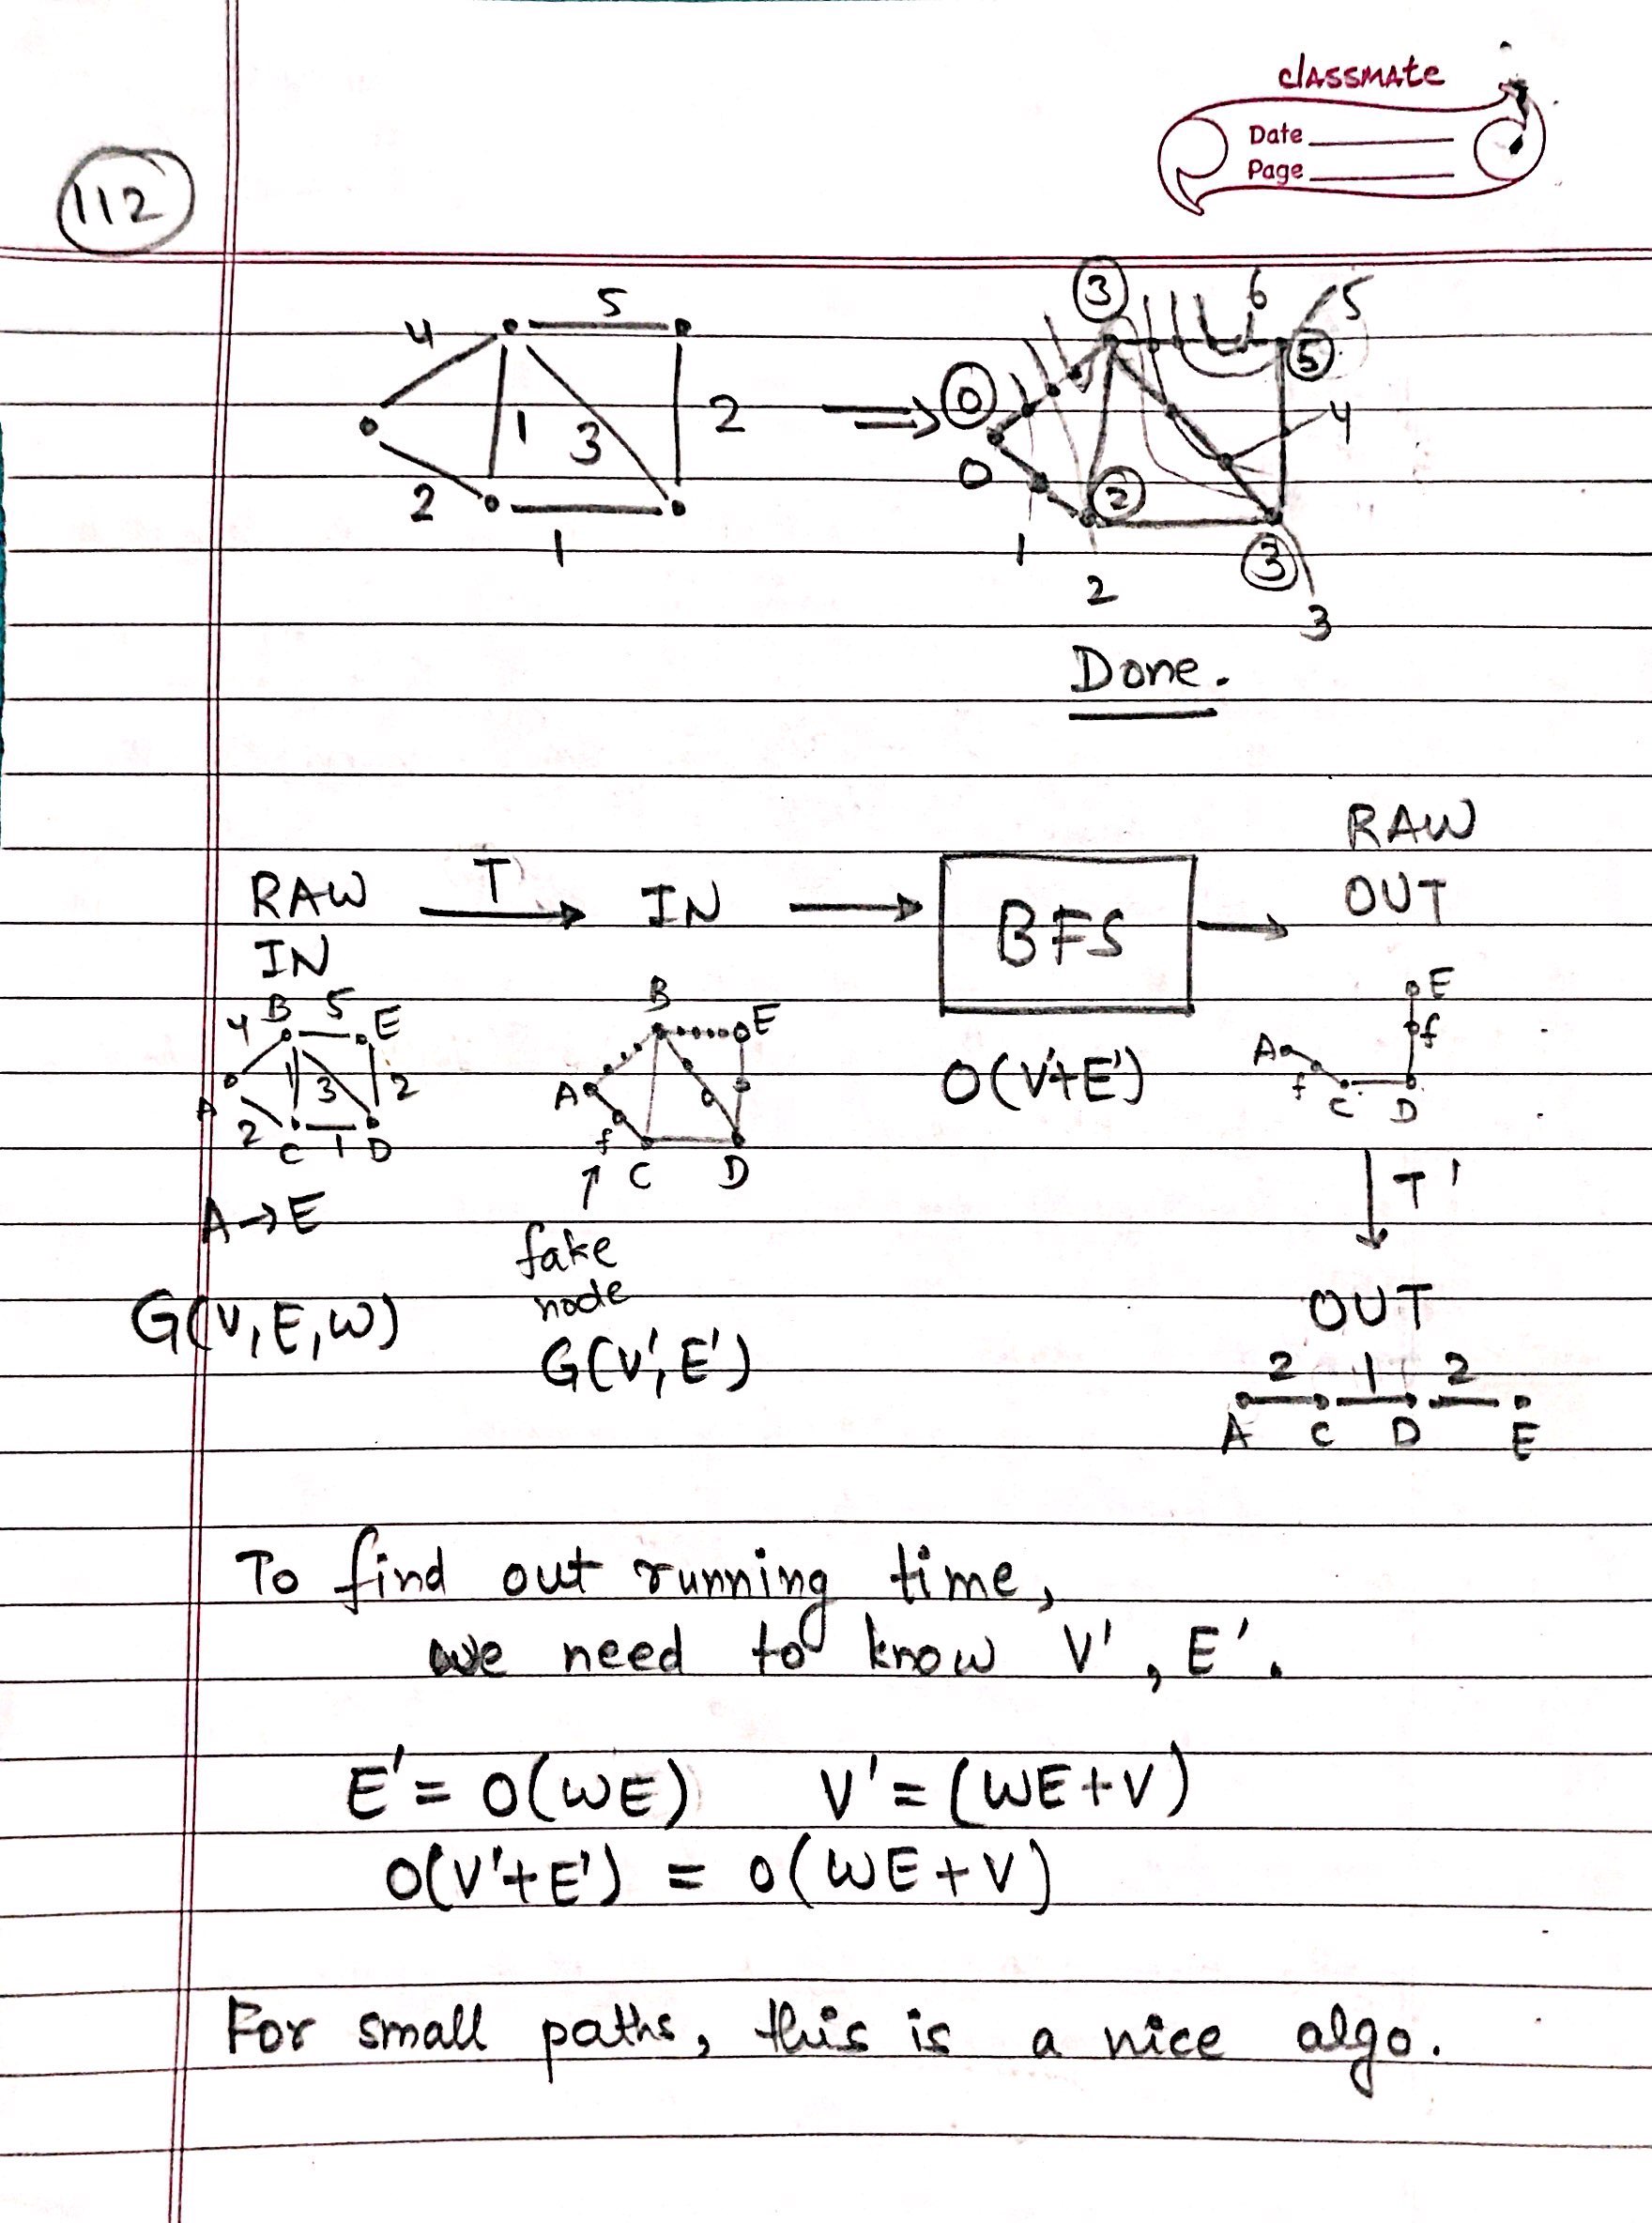 classmate
Date
Page
112
5
4
1
3
2
2
1
3
6
5
5
0
4
0
2
1
3
2
3
Done.
RAW
IN
T
IN
BFS
RAW
OUT
4
B
5
E
1
3
2
A
2
C
1
D
A→E
G(V,E,W)
B
E
A
f
C
D
fake
node
G(V',E')
O(V'+E')
E
f
A
f
C
D
T'
OUT
2
1
2
A
C
D
E
To find out running time,
we need to know V', E'.
E' = O(WE) V' = (WE+V)
O(V'+E') = O(WE+V)
For small paths, this is a nice algo.